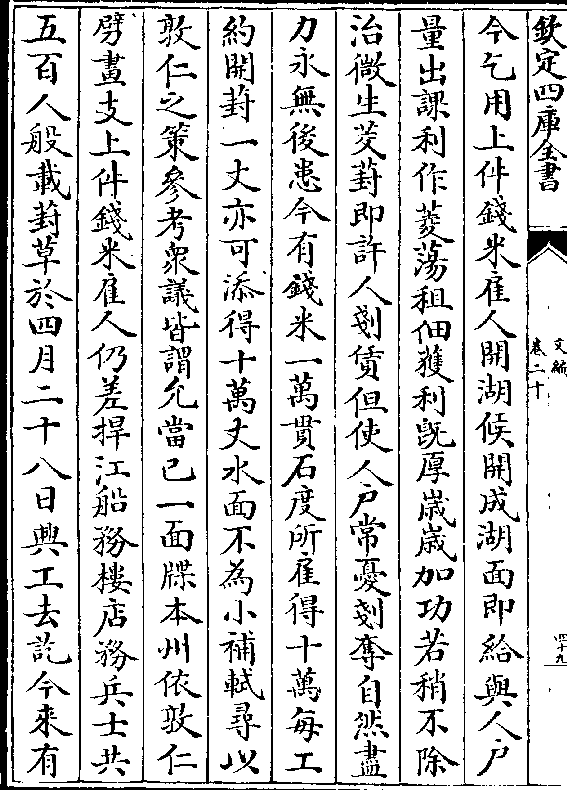 欽定四庫全書
文編
卷二十
四十九
今乞用上件錢米雇人開湖候開成湖面即給與人户
量出課利作菱蕩租佃獲利既厚歳歳加功若稍不除
治微生茭葑即許人剗賃但使人户常憂剗奪自然盡
力永無後患今有錢米一萬貫石度所雇得十萬每工
約開葑一丈亦可添得十萬丈水面不為小補軾尋以
敦仁之策參考衆議皆謂允當已一面牒本州依敦仁
劈畫支上件錢米雇人仍差捍江船務樓店務兵士共
五百人般載葑草於四月二十八日興工去訖今來有